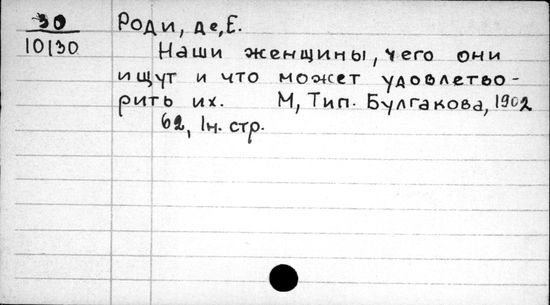 30
10130
Роди, де, Е.
Наши женщины, чего они
ищут и что может удовлетво-
рить их. М, Тип. Булгакова, 1902
62, 1н. стр.